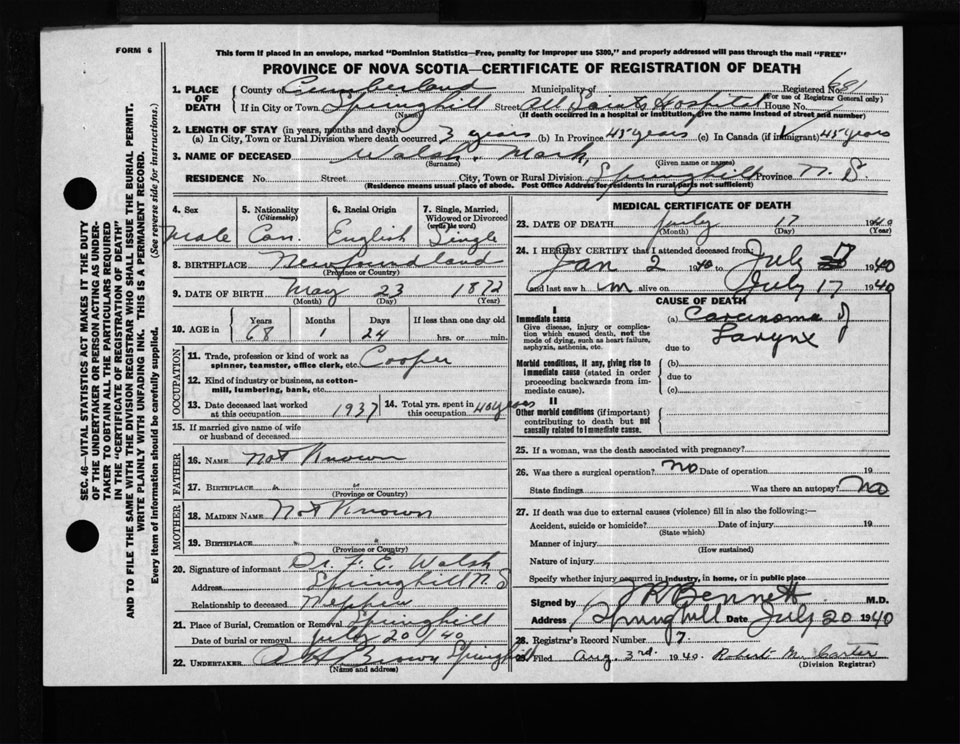 FORM 6
This form if placed in an envelope, marked "Dominion Statistics—Free, penalty for improper use $300," and properly addressed will pass through the mail "FREE"
PROVINCE OF NOVA SCOTIA—CERTIFICATE OF REGISTRATION OF DEATH
1. PLACE OF DEATH County of Cumberland Municipality of Registered No. 681
(For use of Registrar General only)
If in City or Town Springhill Street All Saints Hospital House No.
(Name) (If death occurred in a hospital or institution, give the name instead of street and number)
2. LENGTH OF STAY (in years, months and days)
(a) In City, Town or Rural Division where death occurred 3 years (b) In Province 45 years (c) In Canada (if immigrant) 45 years
3. NAME OF DECEASED Walsh, Mark,
(Surname) (Given name or names)
RESIDENCE No. Street City, Town or Rural Division Springhill Province N. S.
(Residence means usual place of abode. Post Office Address for residents in rural parts not sufficient)
4. Sex Male
5. Nationality (Citizenship) Can.
6. Racial Origin English
7. Single, Married, Widowed or Divorced (write the word) Single
8. BIRTHPLACE Newfoundland
(Province or Country)
9. DATE OF BIRTH May 23 1872
(Month) (Day) (Year)
10. AGE in Years Months Days If less than one day old
68 1 24 hrs. or min.
OCCUPATION
11. Trade, profession or kind of work as spinner, teamster, office clerk, etc. Cooper
12. Kind of industry or business, as cotton-mill, lumbering, bank, etc.
13. Date deceased last worked at this occupation 1937
14. Total yrs. spent in this occupation 40 years
15. If married give name of wife or husband of deceased
FATHER
16. NAME Not Known
17. BIRTHPLACE " "
(Province or Country)
MOTHER
18. MAIDEN NAME Not Known
19. BIRTHPLACE " "
(Province or Country)
20. Signature of informant Dr. F. E. Walsh
Address Springhill N. S
Relationship to deceased Nephew
21. Place of Burial, Cremation or Removal Springhill
Date of burial or removal July 20 / 40
22. UNDERTAKER Brown Springhill
(Name and address)
MEDICAL CERTIFICATE OF DEATH
23. DATE OF DEATH July 17 1940
(Month) (Day) (Year)
24. I HEREBY CERTIFY that I attended deceased from
Jan 2 1940 to July 1940
and last saw h im alive on July 17 1940
CAUSE OF DEATH
I
Immediate cause
Give disease, injury or complication which caused death, not the mode of dying, such as heart failure, asphyxia, asthenia, etc.
(a) Carcinoma of
Larynx
due to
Morbid conditions, if any, giving rise to immediate cause (stated in order proceeding backwards from immediate cause).
(b)
due to
(c)
II
Other morbid conditions (if important) contributing to death but not causally related to immediate cause.
25. If a woman, was the death associated with pregnancy?
26. Was there a surgical operation? no Date of operation 19
State findings Was there an autopsy? no
27. If death was due to external causes (violence) fill in also the following:—
Accident, suicide or homicide? Date of injury 19
(State which)
Manner of injury
(How sustained)
Nature of injury
Specify whether injury occurred in industry, in home, or in public place
Signed by Bennett M.D.
Address Springhill Date July 20 1940
28. Registrar's Record Number 7.
29. Filed Aug. 3rd. 1940. Robert M. Carter
(Division Registrar)
SEC. 46—VITAL STATISTICS ACT MAKES IT THE DUTY
OF THE UNDERTAKER OR PERSON ACTING AS UNDER-
TAKER TO OBTAIN ALL THE PARTICULARS REQUIRED
IN THE "CERTIFICATE OF REGISTRATION OF DEATH"
AND TO FILE THE SAME WITH THE DIVISION REGISTRAR WHO SHALL ISSUE THE BURIAL PERMIT.
WRITE PLAINLY WITH UNFADING INK. THIS IS A PERMANENT RECORD.
Every item of information should be carefully supplied. (See reverse side for instructions.)